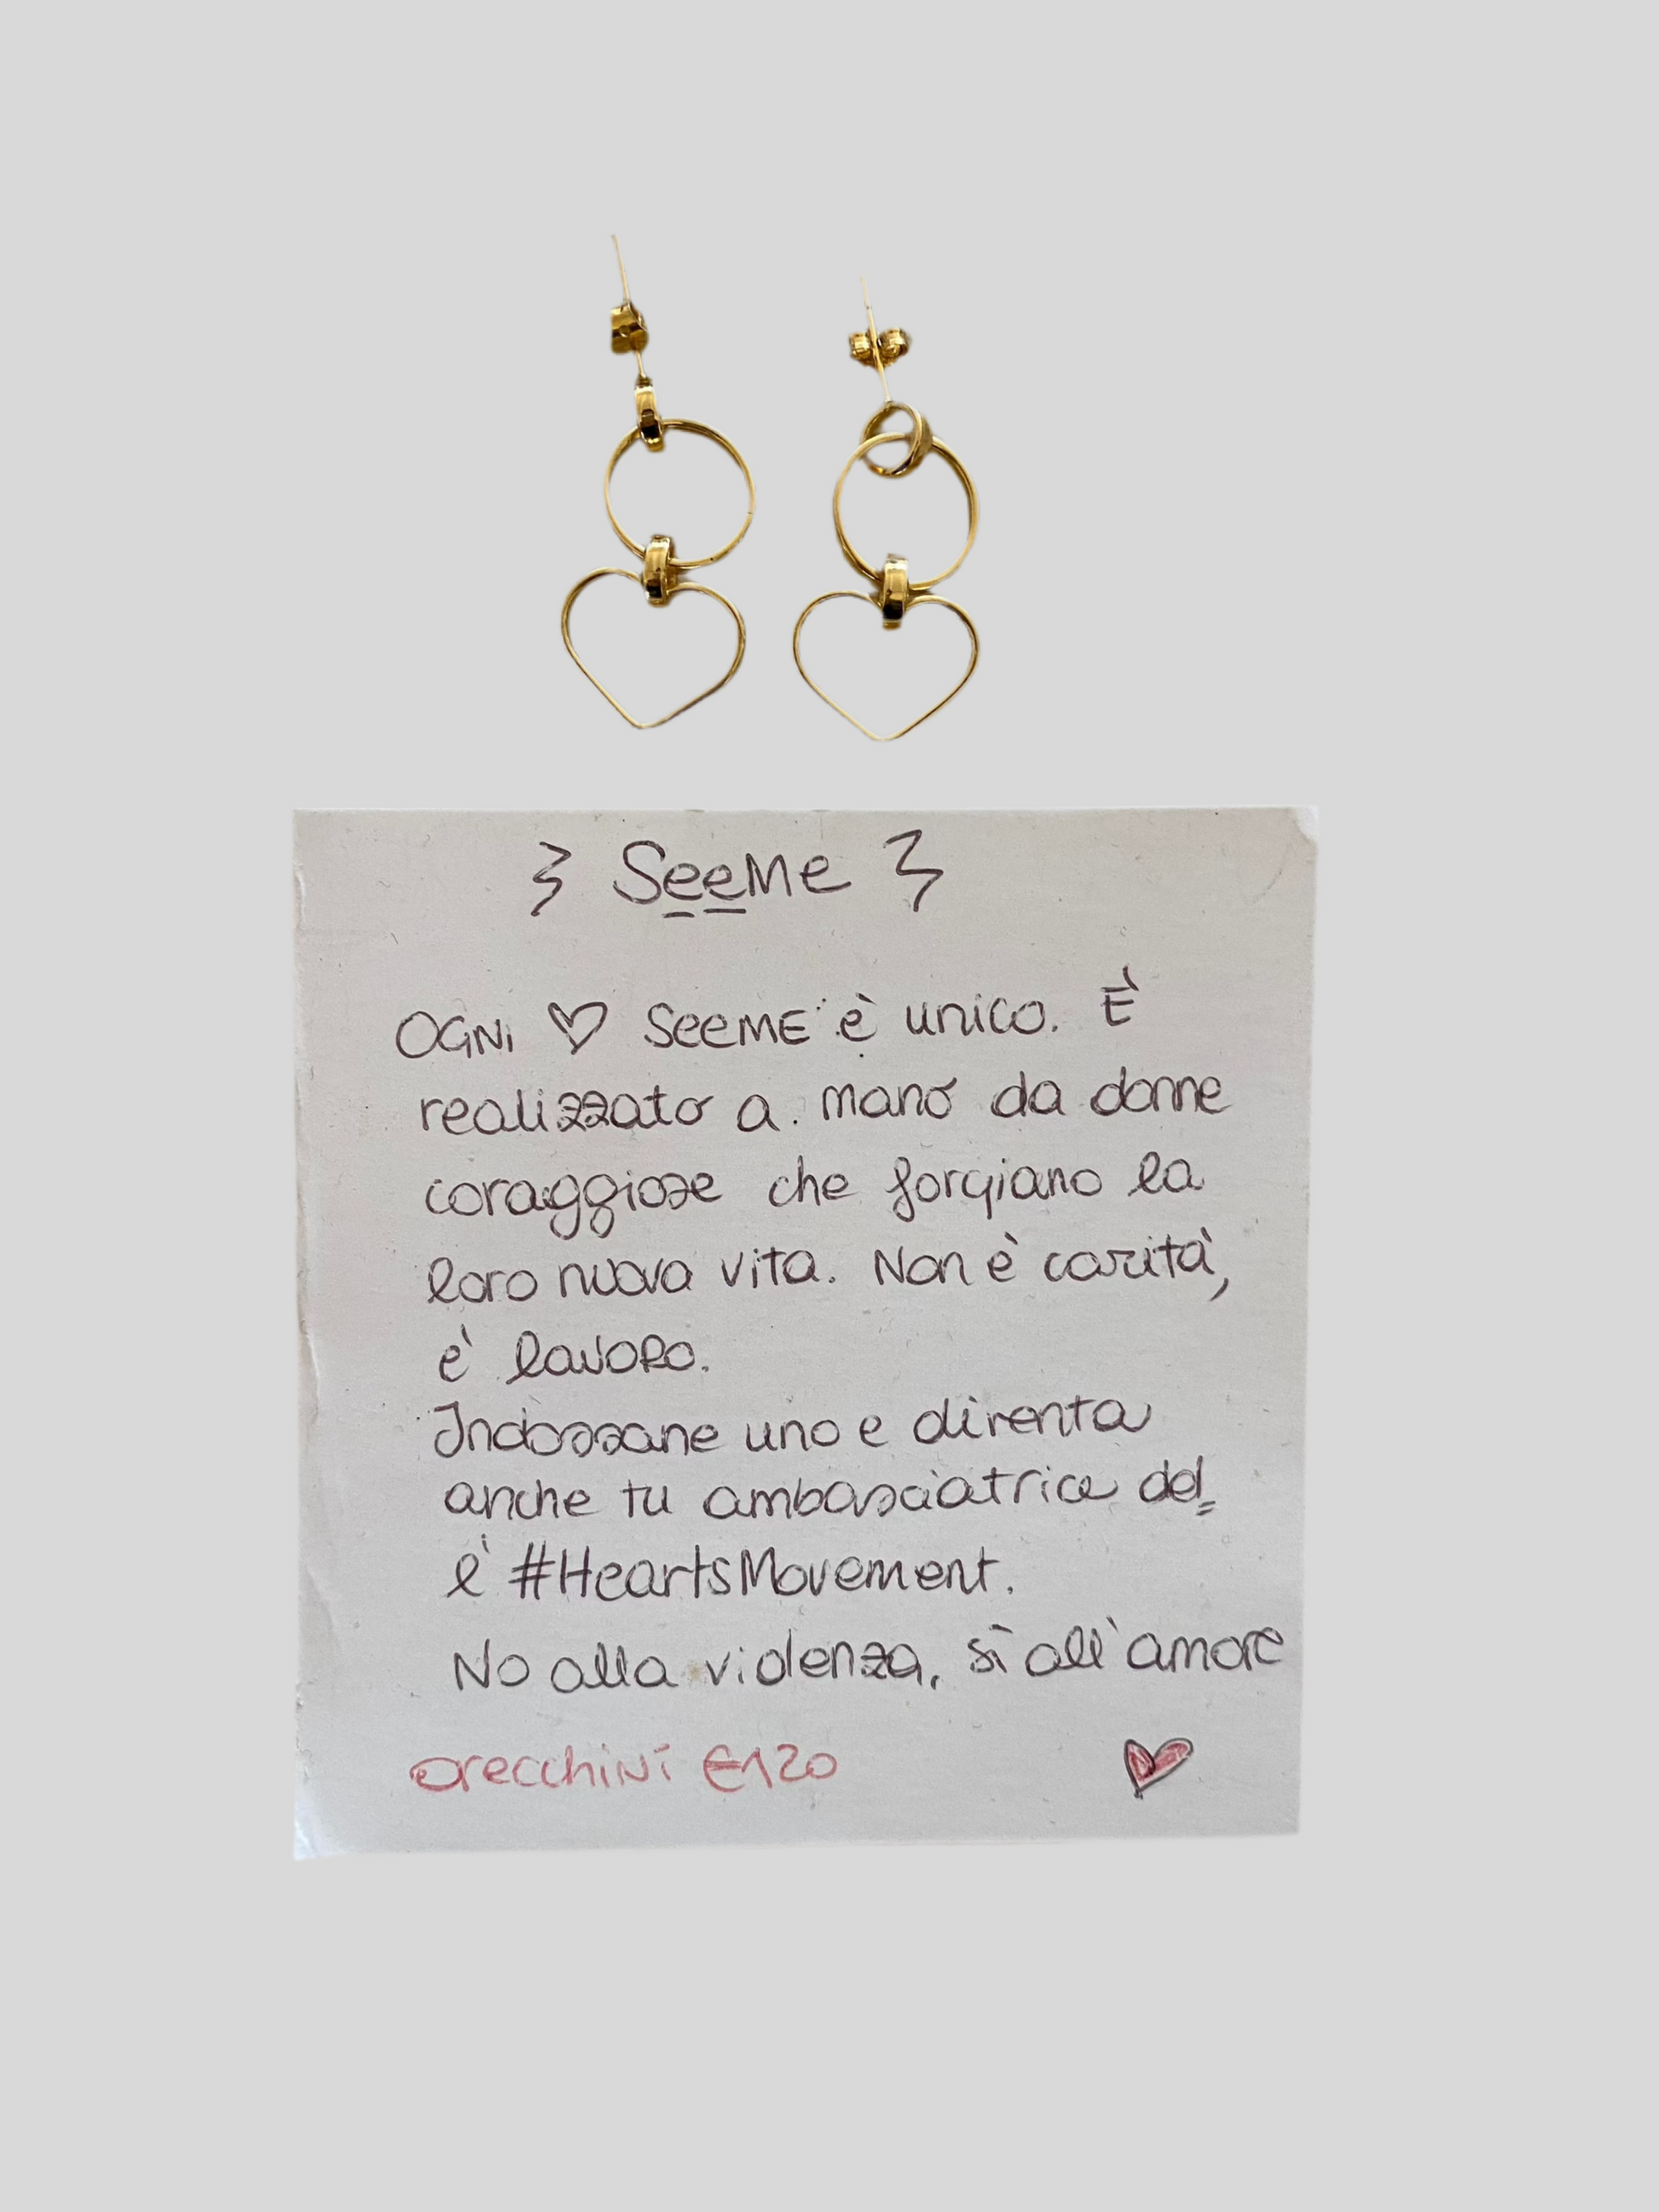 SeeMe
OGNI ♡ SeeME è unico. È
realizzato a mano da donne
coraggiose che forgiano la
loro nuova vita. Non è carità,
è lavoro.
Indossane uno e diventa
anche tu ambasciatrice del=
l' #HeartsMovement.
No alla violenza, sì all'amore
orecchini €120